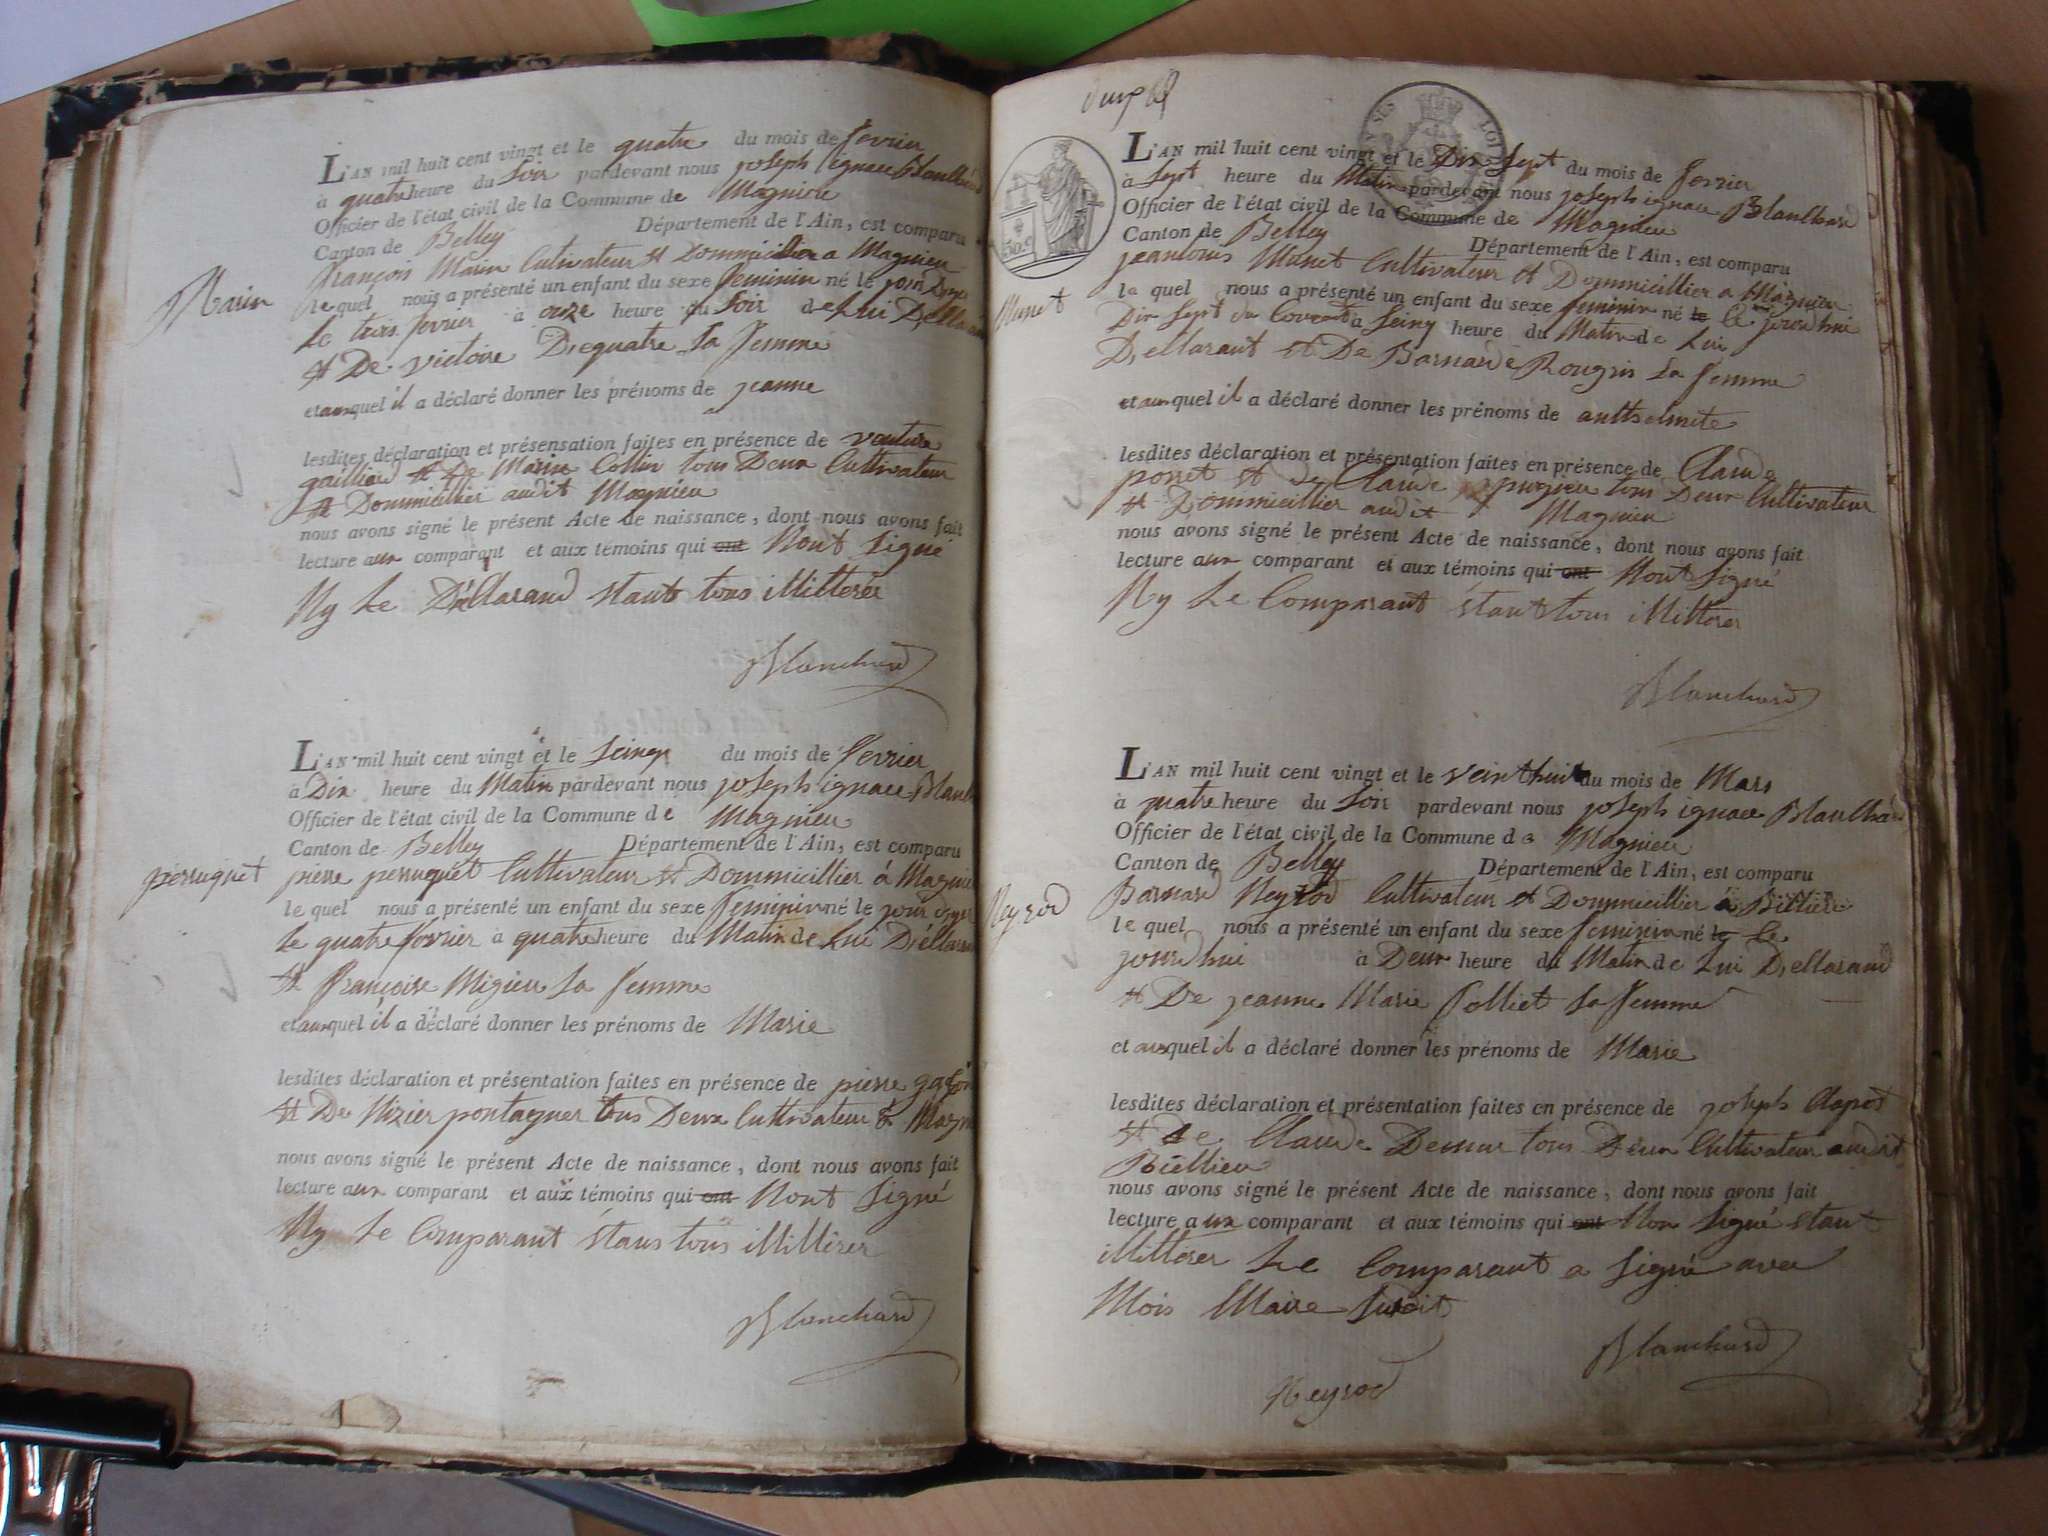 L'AN mil huit cent vingt et le quatre du mois de fevrier
à quatre heure du Soir pardevant nous joseph ignace Blanchard
Officier de l'état civil de la Commune de Magnieu
Canton de Belley Département de l'Ain, est comparu
Marin
françois Marin Cultivateur et Dommicillier a Magnieu
le quel nous a présenté un enfant du sexe feminin né le jour Dyer
Le trois fevrier à onze heure du Soir de Lui Declarant
et De victoire Dequatre Sa femme
et auquel il a déclaré donner les prénoms de jeanne
lesdites déclaration et présensation faites en présence de
gailliard et De Marin Collin tous Deux Cultivateur
et Dommicillier audit Magnieu
nous avons signé le présent Acte de naissance, dont nous avons fait
lecture aux comparant et aux témoins qui ont Nont Signé
Ny Le Déllarand Etant tous illitterer
Blanchard
L'AN mil huit cent vingt et le Seinq du mois de fevrier
à Dix heure du Matin pardevant nous joseph ignace Blanch
Officier de l'état civil de la Commune de Magnieu
Canton de Belley Département de l'Ain, est comparu
perruquet
pierre perruquet Cultivateur et Dommicillier à Magnieu
le quel nous a présenté un enfant du sexe feminin né le jour dyer
Le quatre fevrier à quatre heure du Matin de Lui Déllarant
et françoise Migieu Sa femme
et auquel il a déclaré donner les prénoms de Marie
lesdites déclaration et présentation faites en présence de pierre
et De Nizier pontagner tous Deux Cultivateur à Magn
nous avons signé le présent Acte de naissance, dont nous avons fait
lecture aux comparant et aux témoins qui ont Nont Signé
Ny Le Comparant Etans tous illitterer
Blanchard
L'AN mil huit cent vingt et le Dix Sept du mois de fevrier
à Sept heure du Matin pardevant nous joseph ignace Blanchard
Officier de l'état civil de la Commune de Magnieu
Canton de Belley Département de l'Ain, est comparu
Munet
jeanlouis Munet Cultivateur et Dommicillier a Magnieu
le quel nous a présenté un enfant du sexe feminin né le le jourdhui
Dix Sept du Courant à Seinq heure du Matin de Lui
Dellarant et De Barnarde Rougin Sa femme
et auquel il a déclaré donner les prénoms de anthelmete
lesdites déclaration et présentation faites en présence de Claude
porret et de Claude pugieu tous Deux Cultivateur
et Dommicillier audit Magnieu
nous avons signé le présent Acte de naissance, dont nous avons fait
lecture aux comparant et aux témoins qui ont Nont Signé
Ny Le Comparant Etant tous illitterer
Blanchard
L'AN mil huit cent vingt et le veinthuit du mois de Mars
à quatre heure du Soir pardevant nous joseph ignace Blanchard
Officier de l'état civil de la Commune de Magnieu
Canton de Belley Département de l'Ain, est comparu
Neyrod
Barnard Neyrod Cultivateur et Dommicillier à Billieu
le quel nous a présenté un enfant du sexe feminin né le le
jourdhui à Deux heure du Matin de Lui Dellarand
et De jeanne Marie Polliet Sa femme
et auquel il a déclaré donner les prénoms de Marie
lesdites déclaration et présentation faites en présence de joseph Clapot
et de Claude tous Deux Cultivateur audit
Biellieu
nous avons signé le présent Acte de naissance, dont nous avons fait
lecture aux comparant et aux témoins qui ont Non Signé Etant
illitterer Le Comparant a Signé avec
Mois Maire Susdit
Blanchard
Neyrod